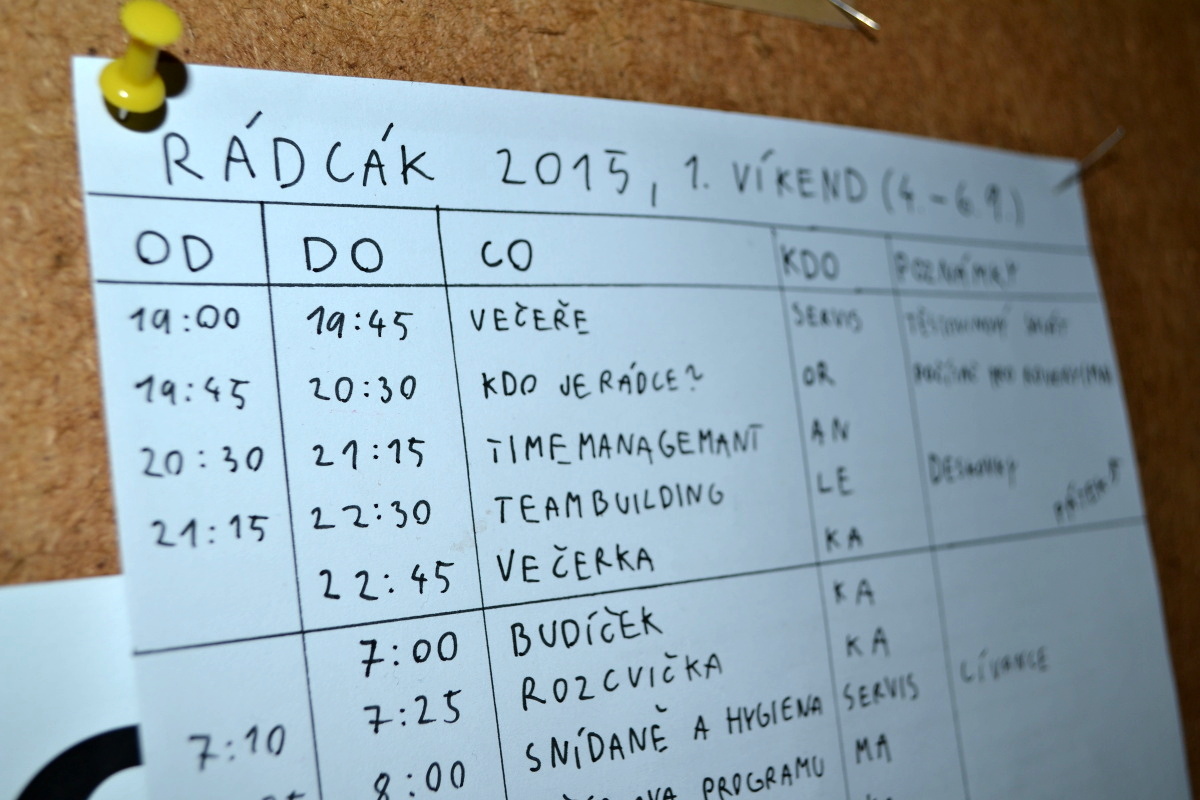 RÁDCÁK 2015, 1. VÍKEND (4.-6.9.)
OD DO CO KDO POZNÁMKY
19:00 19:45 VEČEŘE SERVIS
19:45 20:30 KDO JE RÁDCE? OR
20:30 21:15 TIMEMANAGEMANT AN
21:15 22:30 TEAMBUILDING LE
22:45 VEČERKA KA
7:00 BUDÍČEK KA
7:10 7:25 ROZCVIČKA KA
8:00 SNÍDANĚ A HYGIENA SERVIS LÍVANCE
PROGRAMU MA